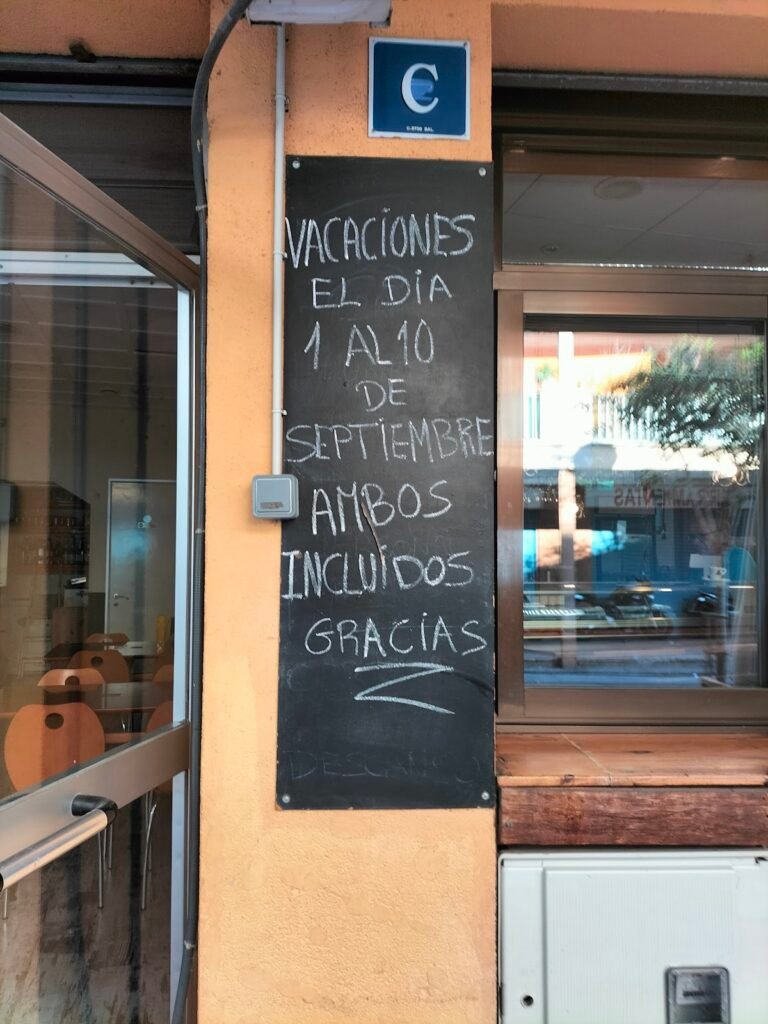 C
VACACIONES
EL DIA
1 AL 10
DE
SEPTIEMBRE
AMBOS
INCLUIDOS
GRACIAS
DESCANSO